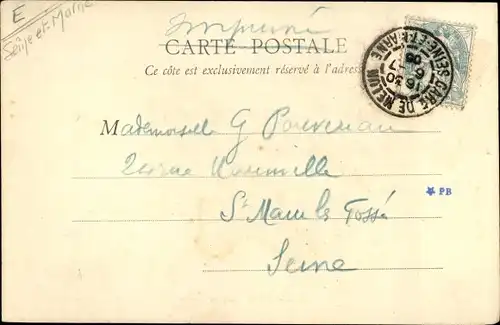 E
Seine et-Marne
Imprimé
CARTE POSTALE
Ce côté est exclusivement réservé à l'adresse
GARE DE MELUN
SEINE-ET-MARNE
16 30
Mademoiselle G
24 rue
St Maur les Fossé
PB
Seine